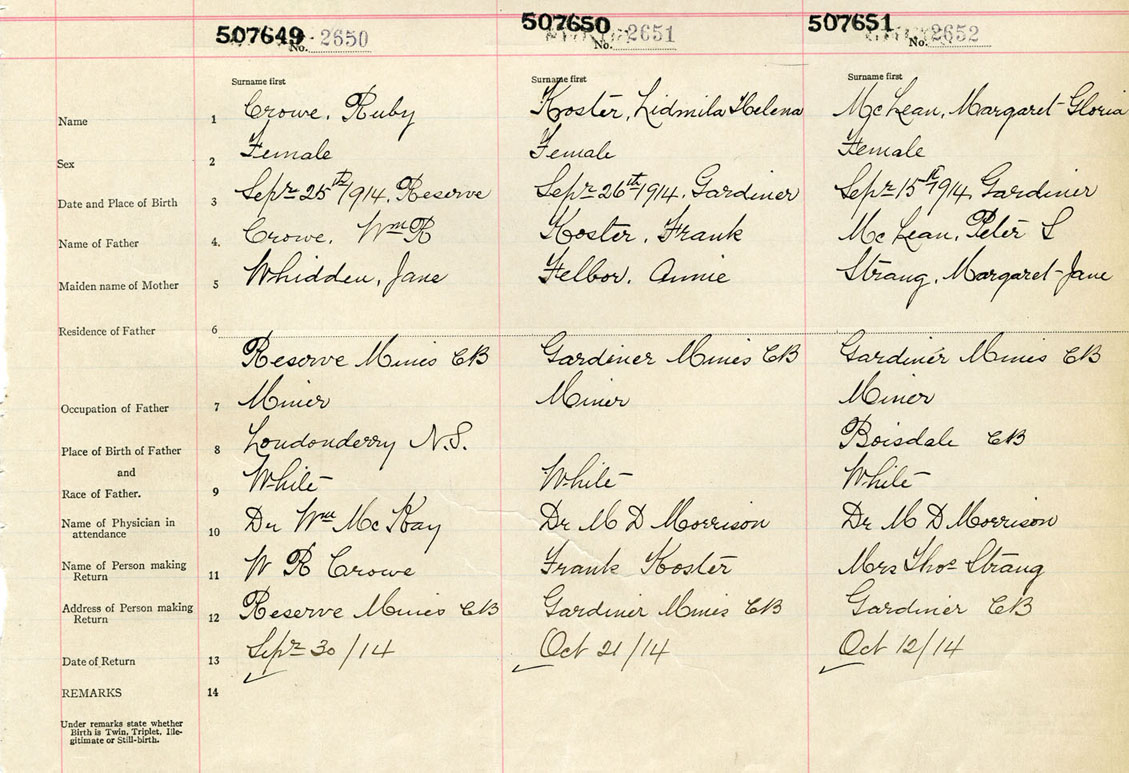 507649 507650 507651
No. 2650 No. 2651 No. 2652
Surname first Surname first Surname first
Name 1 Crowe, Ruby Koster, Lidmila Helena McLean, Margaret Gloria
Sex 2 Female Female Female
Date and Place of Birth 3 Sepr 25th 1914, Reserve Sepr 26th 1914, Gardiner Sepr 15th 1914, Gardiner
Name of Father 4. Crowe, Wm R Koster, Frank McLean, Peter S
Maiden name of Mother 5 Whidden, Jane Felbor, Annie Strang, Margaret Jane
Residence of Father 6
Reserve Mines CB Gardiner Mines CB Gardiner Mines CB
Occupation of Father 7 Miner Miner Miner
Place of Birth of Father 8 Londonderry N.S. Boisdale CB
and
Race of Father. 9 White White White
Name of Physician in
attendance 10 Dr Wm McKay Dr M D Morrison Dr M D Morrison
Name of Person making
Return 11 W R Crowe Frank Koster Mrs Thos Strang
Address of Person making
Return 12 Reserve Mines CB Gardiner Mines CB Gardiner CB
Date of Return 13 Sepr 30/14 Oct 21/14 Oct 12/14
REMARKS 14
Under remarks state whether
Birth is Twin, Triplet, Ille-
gitimate or Still-birth.